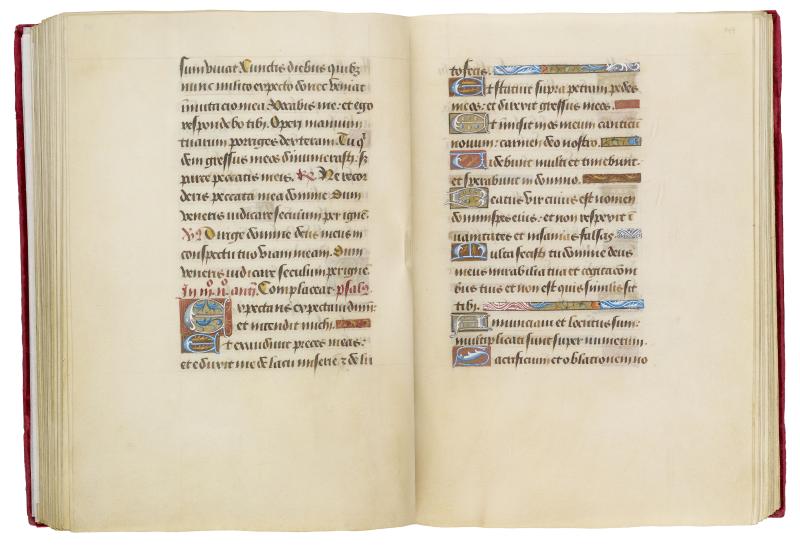 sum vivat. Cunctis diebus quibz
nunc milito expecto donec veniat
inmutacio mea. Vocabis me: et ego
respondebo tibi. Operi manuum
tuarum porriges dexteram. Tu q̄
dem gressus meos dinumerasti. s₃
parce peccatis meis. R̷ Ne recor
deris peccata mea domine. Dum
veneris iudicare seculum per igne.
V̷ Dirige domine deus meus in
conspectu tuo viam meam. Dum
veneris iudicare seculum per igne.
In iiiº nº anti. Complaceat. psalm
Expectans expectavi dn̄m:
et intendit michi.
Et exaudivit preces meas:
et eduxit me de lacu miserie z de lu
to fecis.
Et statuit supra petram pedes
meos: et direxit gressus meos.
Et inmisit in os meum canticū
novum: carmen deo nostro.
Videbunt multi et timebunt:
et sperabunt in domino.
Beatus vir cuius est nomen
domini spes eius: et non respexit ī
vanitates et insanias falsas.
Multa fecisti tu domine deus
meus mirabilia tua et cogitacioni
bus tuis et non est quis similis sit
tibi.
Annunciavi et locutus sum:
multiplicati sunt super numerum.
Sacrificium et oblationem no